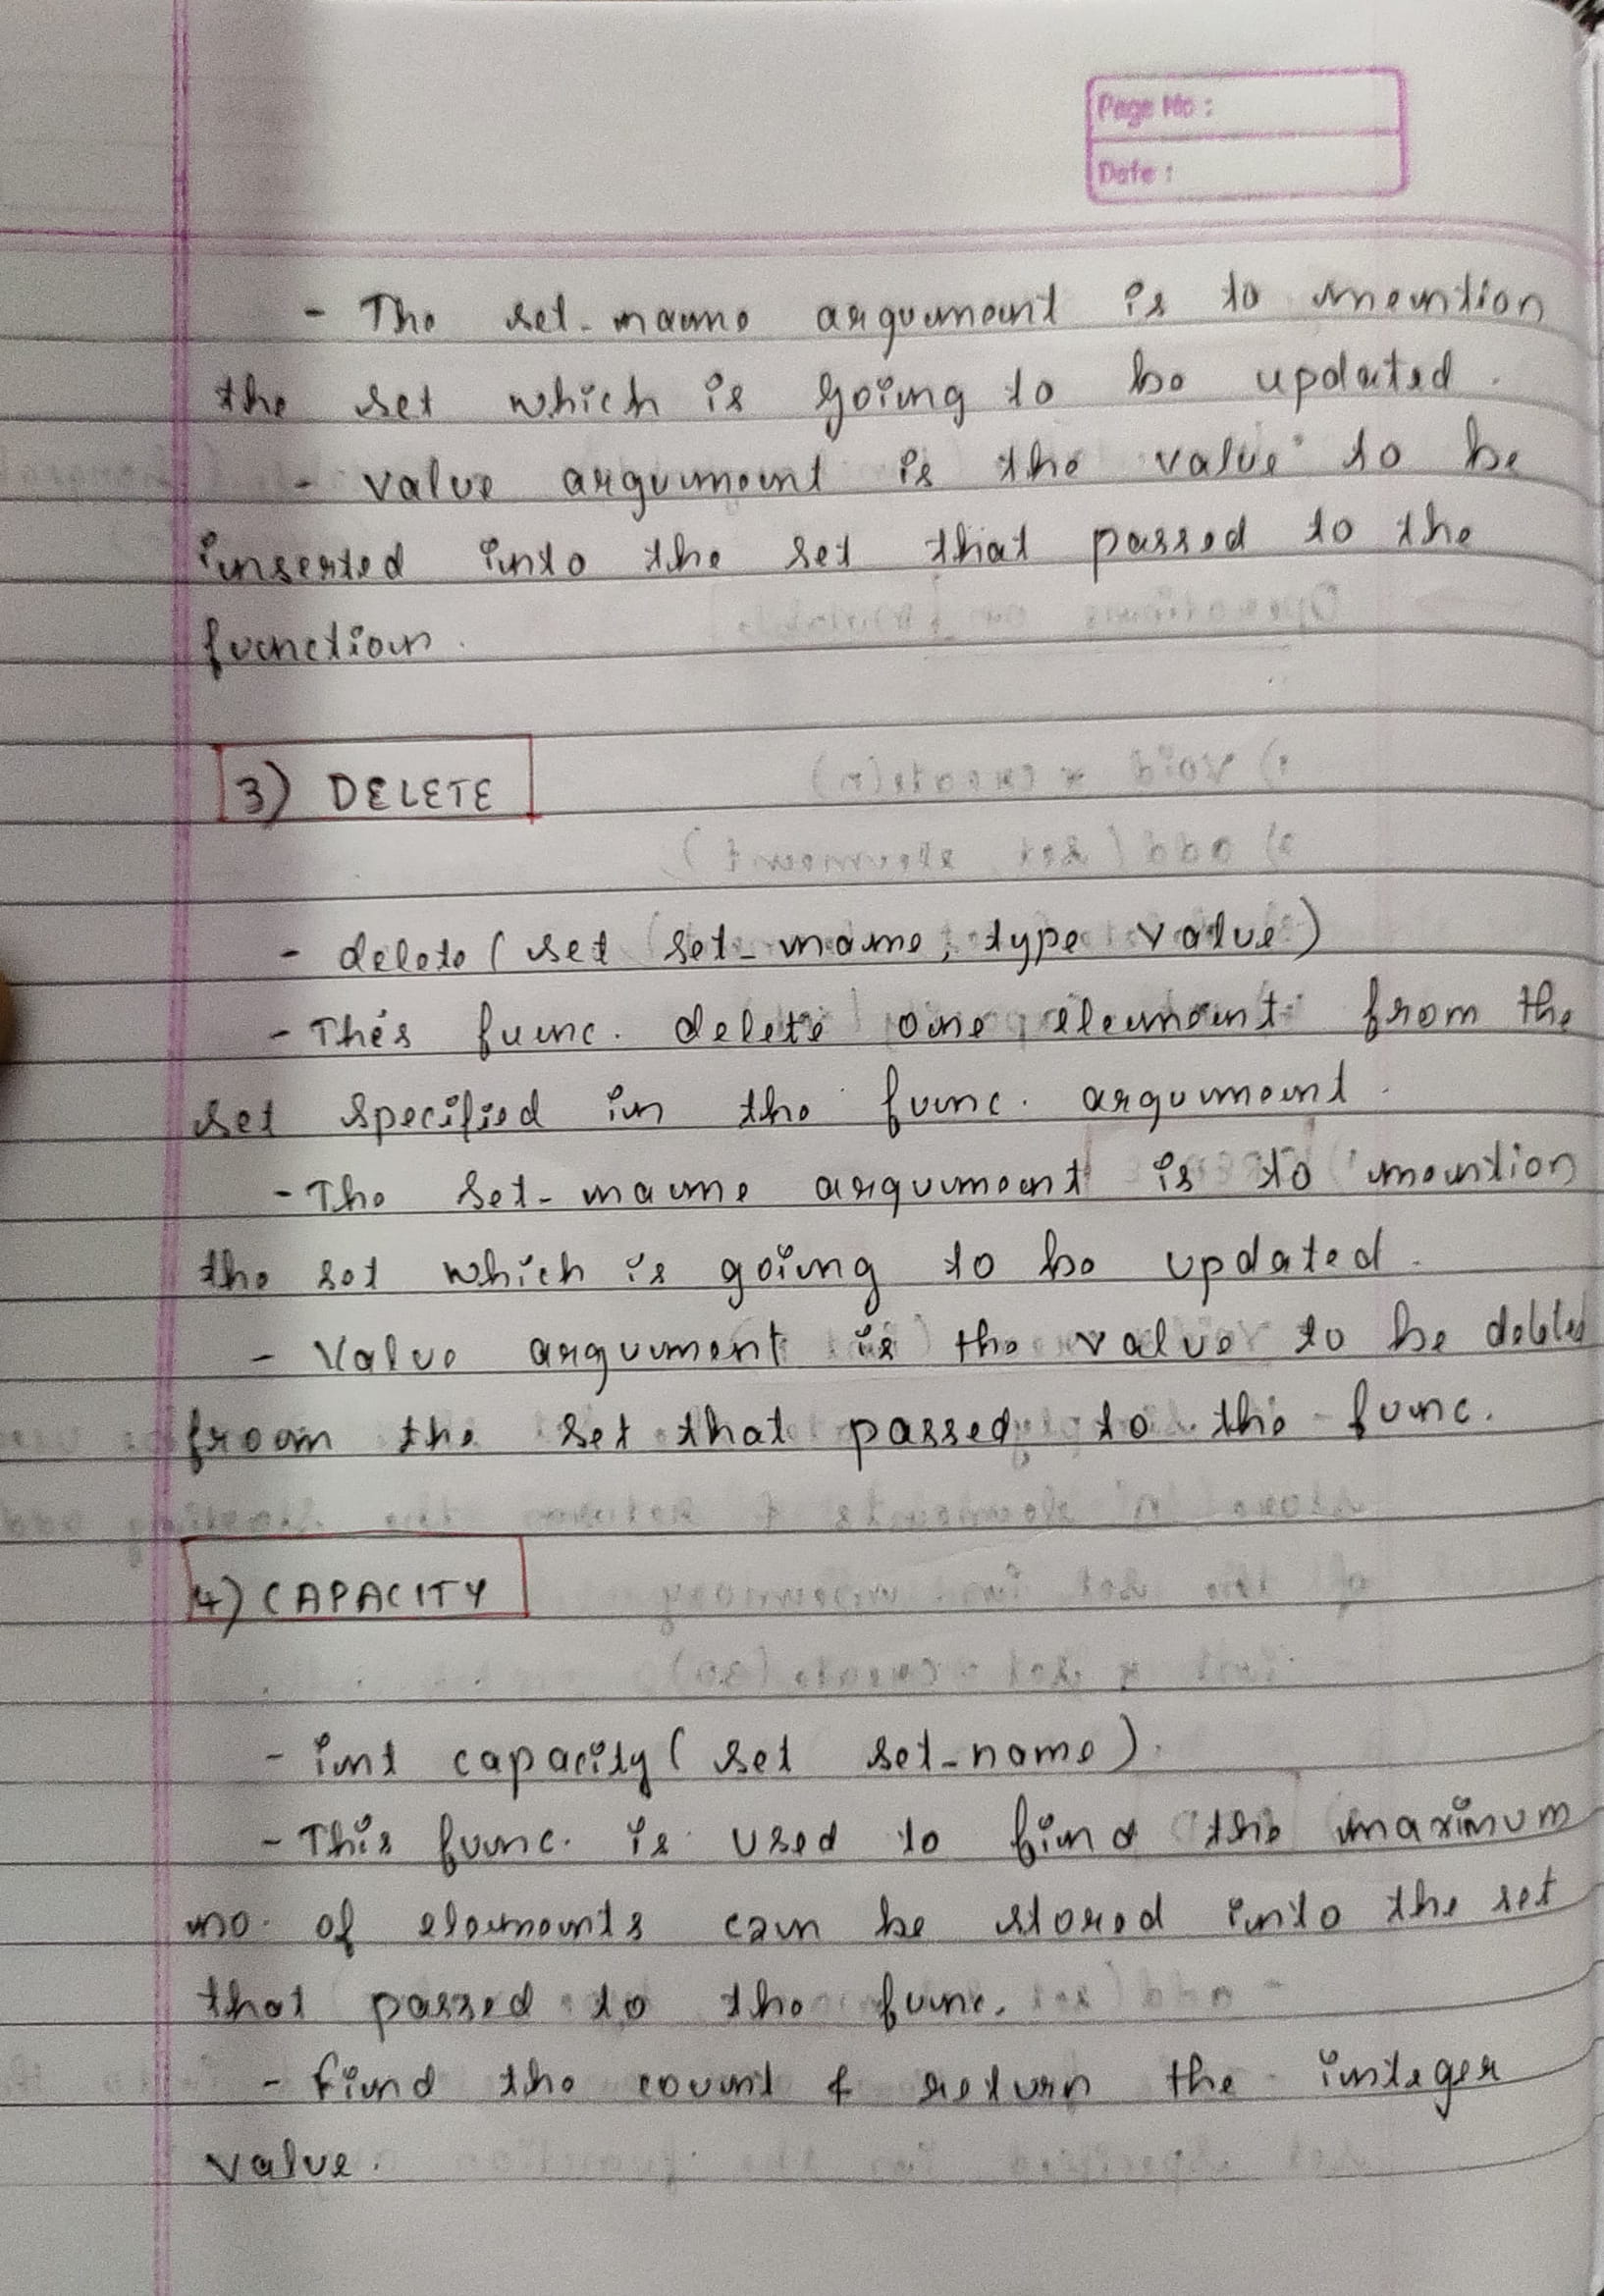 Page No :
Date :
- The set-name argument is to mention
the set which is going to be updated.
- value argument is the value to be
inserted into the set that passed to the
function.
3) DELETE
- delete ( set set-name, type value )
- This func. delete one element from the
set specified in the func. argument.
- The set-name argument is to mention
the set which is going to be updated.
- Value argument is the value to be
from the set that passed to the func.
4) CAPACITY
- int capacity ( set set-name ).
- This func. is used to find the maximum
no. of elements can be stored into the set
that passed to the func.
- find the count & return the integer
value.